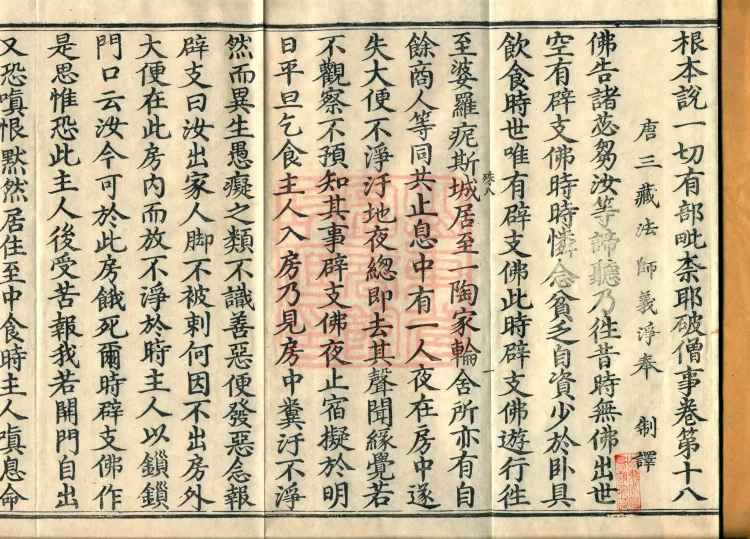 根本說一切有部毗柰耶破僧事卷第十八
唐三藏法師義淨奉　制譯
佛告諸苾芻汝等諦聽乃往昔時無佛出世
空有辟支佛時時憐念貧乏自資少於卧具
飲食時世唯有辟支佛此時辟支佛遊行往
至婆羅痆斯城居至一陶家輪舍所亦有自
餘商人等同共止息中有一人夜在房中遂
失大便不淨汙地夜緫即去其聲聞緣覺若
不觀察不預知其事辟支佛夜止宿擬於明
日平旦乞食主人入房乃見房中糞汙不淨
然而異生愚癡之類不識善惡便發惡念報
辟支曰汝出家人脚不被刺何因不出房外
大便在此房內而放不淨於時主人以鎖鎖
門口云汝今可於此房餓死爾時辟支佛作
是思惟恐此主人後受苦報我若開門自出
又恐嗔恨默然居住至中食時主人嗔息命